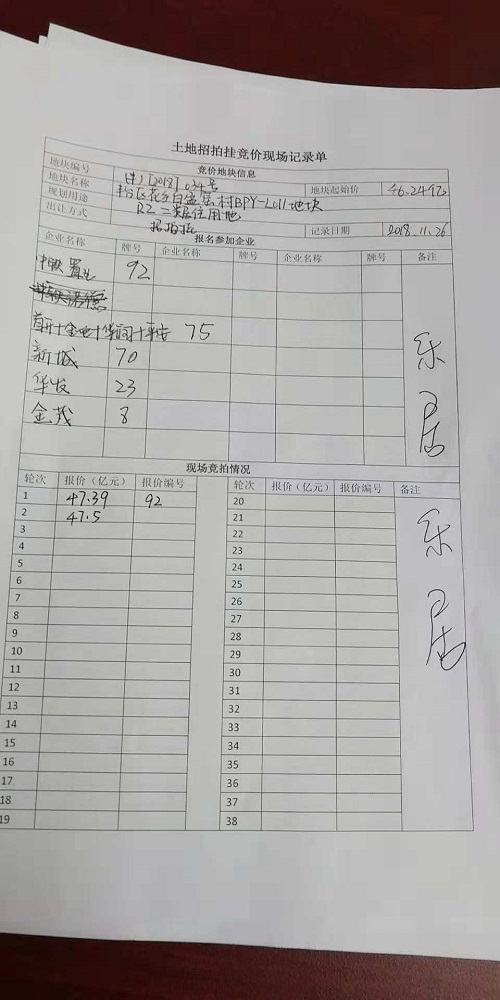 土地招拍挂竞价现场记录单
竞价地块信息
地块编号 [2018]034号 地块起始价 46.24亿
地块名称 丰台区花乡白盆窑村BPY-L011地块
规划用途 R2二类居住用地
出让方式 招拍挂 记录日期 2018.11.26
报名参加企业
企业名称 牌号 企业名称 牌号 企业名称 牌号 备注
中铁置业 92
首开+金地+华润+平安 75
新城 70
华发 23
金茂 8
乐居
现场竞拍情况
轮次 报价（亿元） 报价编号 轮次 报价（亿元） 报价编号 备注
1 47.39 92 20
2 47.5 21
3 22
4 23
5 24
6 25
7 26
8 27
9 28
10 29
11 30
12 31
13 32
14 33
15 34
16 35
17 36
18 37
19 38
乐居